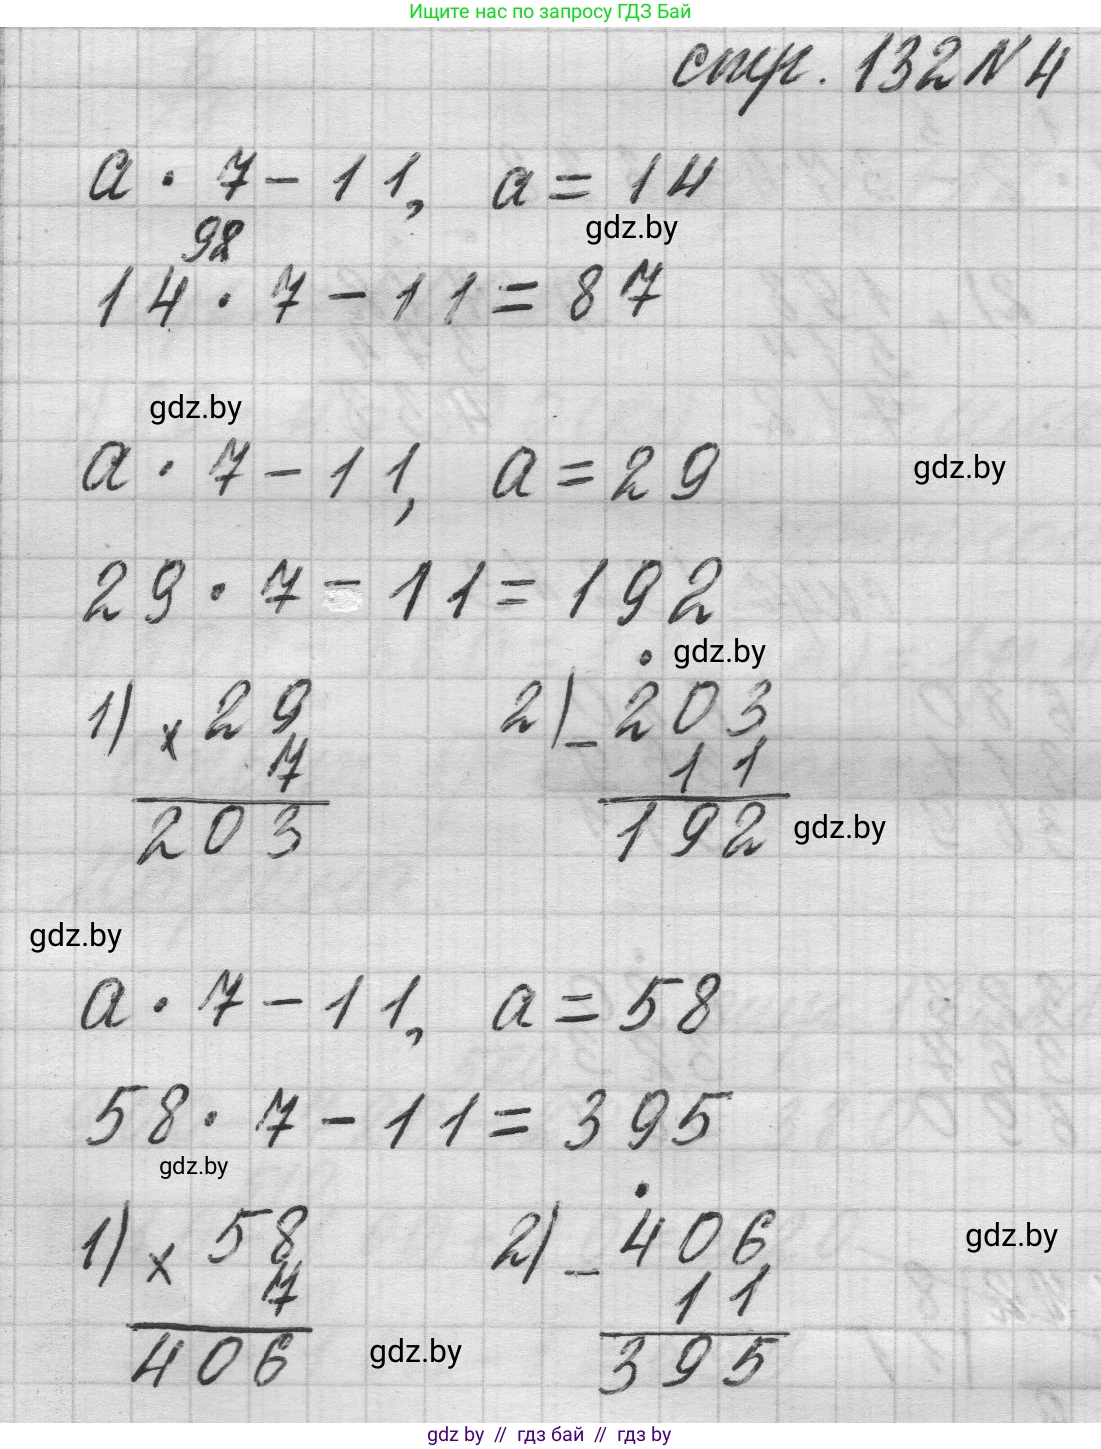 Ищите нас по запросу ГДЗ Бай
стр. 132 N 4
a · 7 - 11, a = 14
gdz.by
98
14 · 7 - 11 = 87
gdz.by
a · 7 - 11, a = 29
gdz.by
29 · 7 - 11 = 192
gdz.by
1) x 29 2) - 203
7 11
203 192
gdz.by
gdz.by
a · 7 - 11, a = 58
58 · 7 - 11 = 395
gdz.by
1) x 58 2) - 406
gdz.by
7 11
406 395
gdz.by
gdz.by // гдз бай // gdz.by